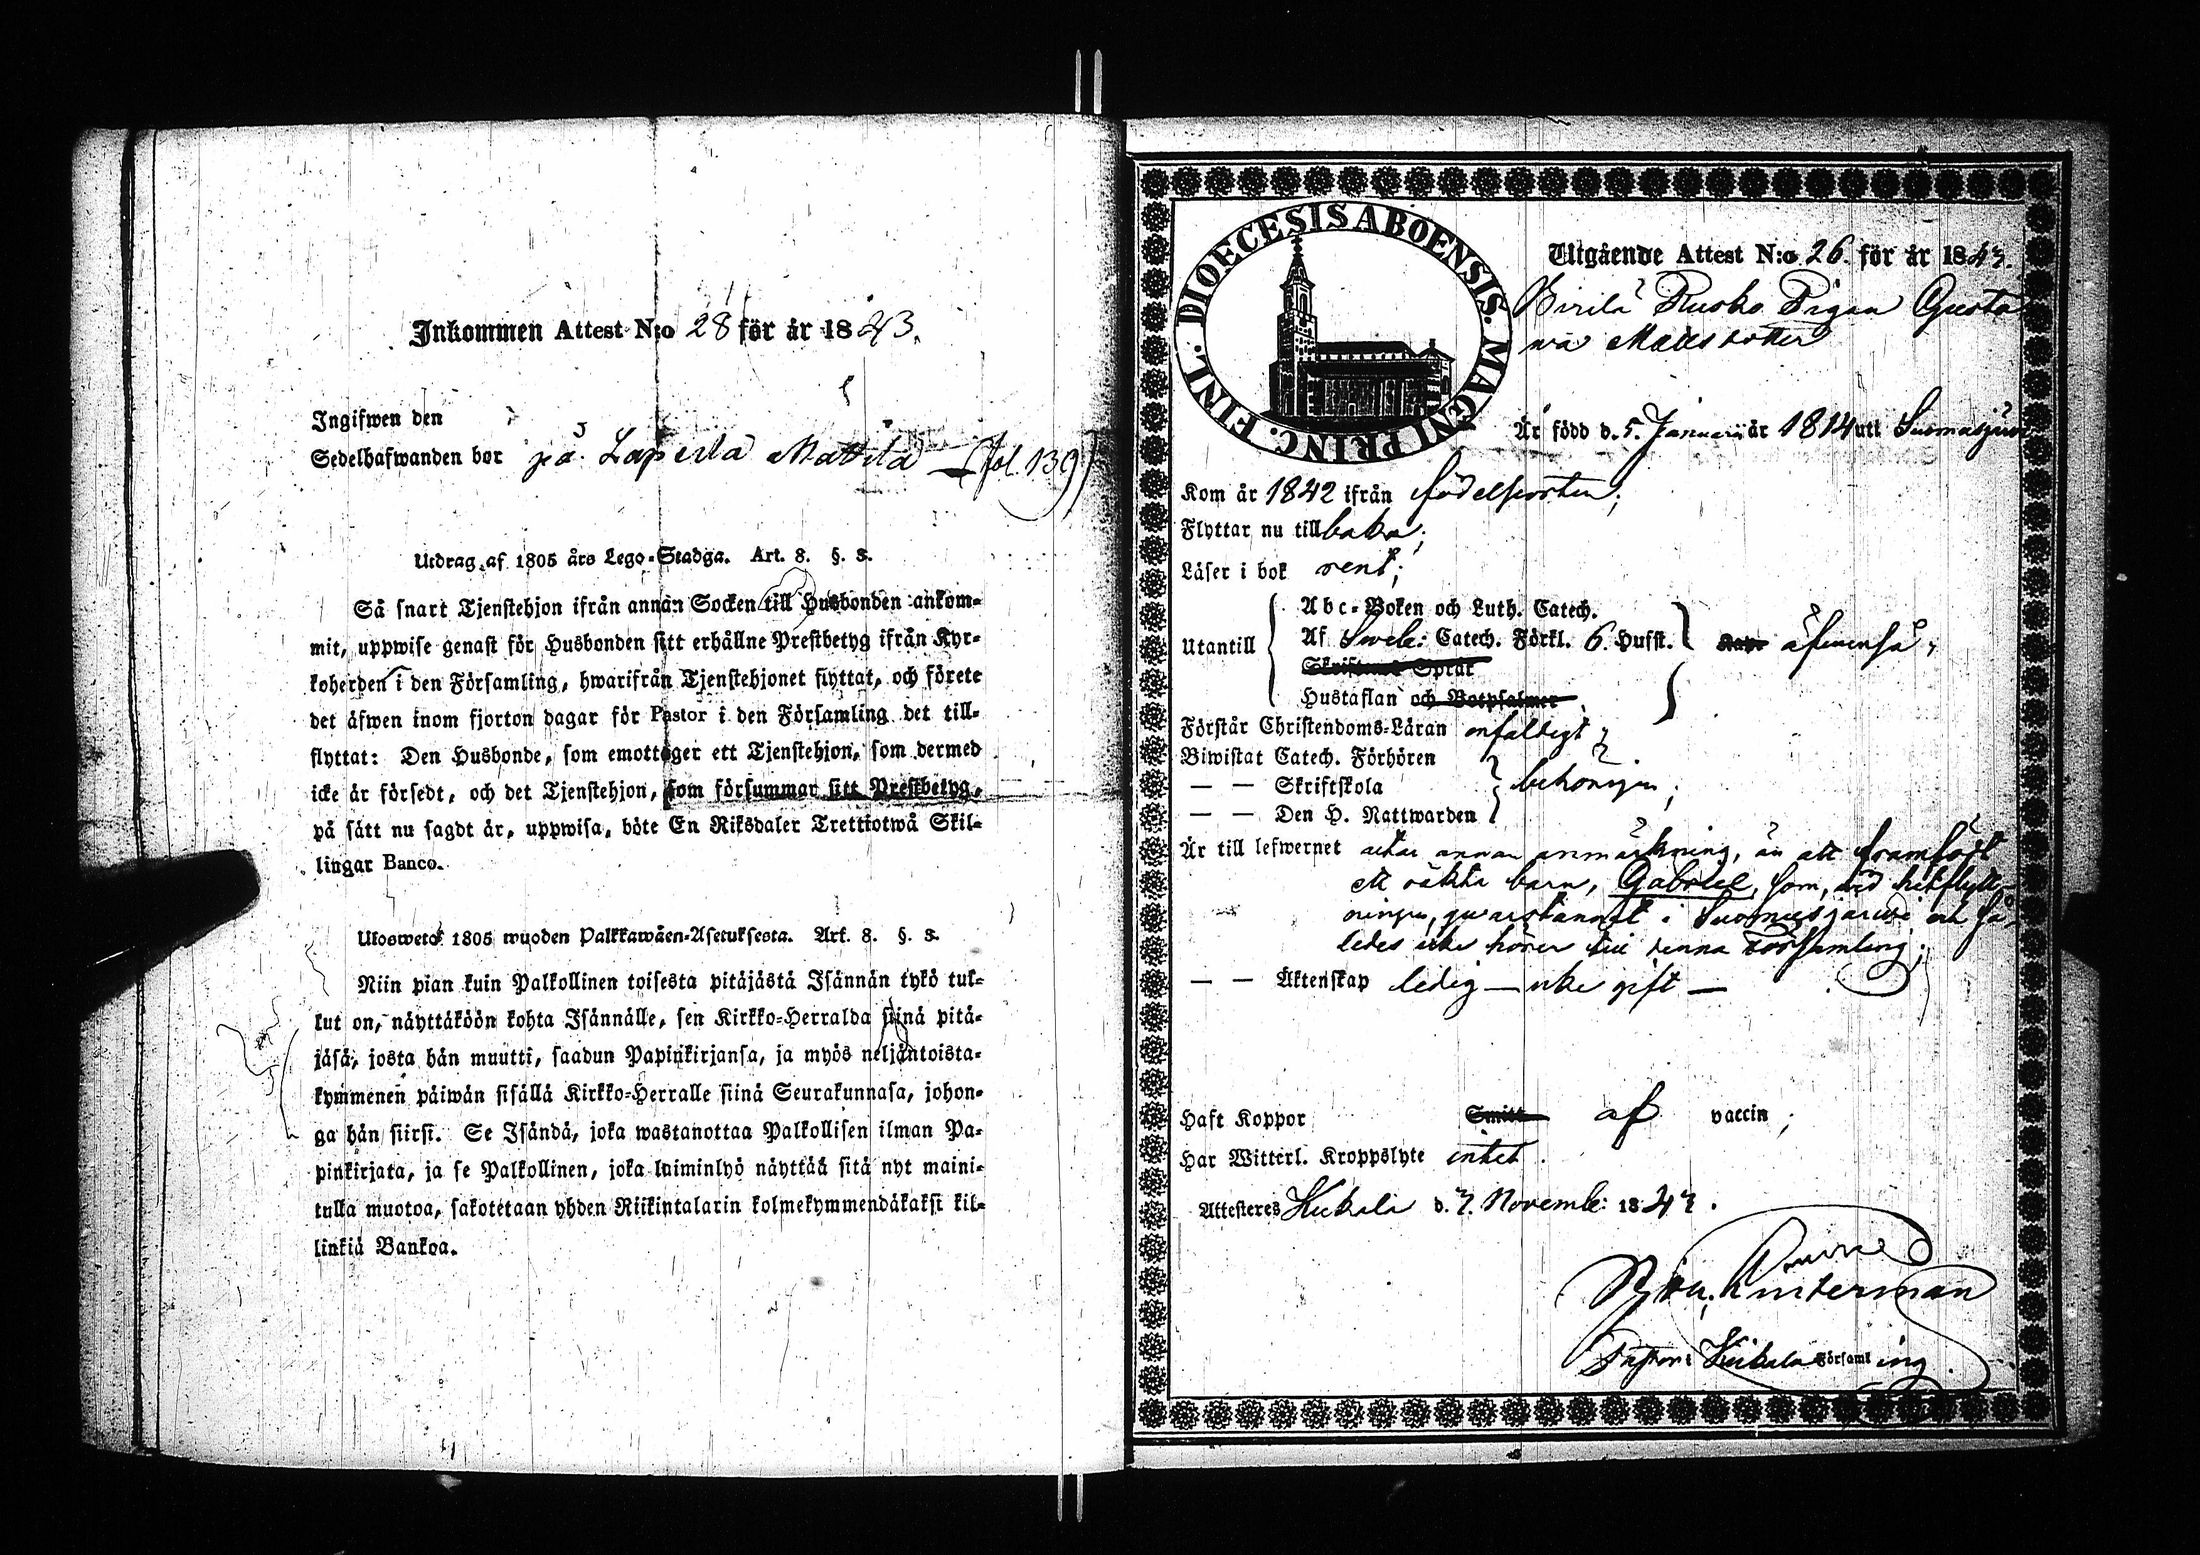 Inkommen Attest N:o 28 för år 1843.
Ingifwen den
Sedelhafwanden bor på Laperla Mattila (fol. 139)
Utdrag af 1805 års Lego-Stadga. Art. 8. §. 3.
Så snart Tjenstehjon ifrån annan Socken till Husbonden ankom-
mit, uppwise genast för Husbonden sitt erhållne Prestbetyg ifrån Kyr-
koherden i den Församling, hwarifrån Tjenstehjonet flyttat, och förete
det äfwen inom fjorton dagar för Pastor i den Församling det till-
flyttat: Den Husbonde, som emottager ett Tjenstehjon, som dermed
icke är försedt, och det Tjenstehjon, som försummar sitt Prestbetyg,
på sätt nu sagdt är, uppwisa, böte En Riksdaler Trettiotwå Skil-
lingar Banco.
Ulosweto 1805 wuoden Palkkawäen-Asetuksesta. Art. 8. §. 3.
Niin pian kuin Palkollinen toisesta pitäjästä Isännän tykö tul-
lut on, näyttäköön kohta Isännälle, sen Kirkko-Herralda siinä pitä-
jäsä, josta hän muutti, saadun Papinkirjansa, ja myös neljäntoista-
kymmenen päiwän sisällä Kirkko-Herralle siinä Seurakunnasa, johon-
ga hän siirsi. Se Isändä, joka wastanottaa Palkollisen ilman Pa-
pinkirjata, ja se Palkollinen, joka laiminlyö näyttää sitä nyt maini-
tulla muotoa, sakotetaan yhden Riikintalarin kolmekymmendäkaksi kil-
linkiä Bankoa.
DIOECESIS ABOENSIS. MAGNI PRINC. FINL.
Utgående Attest N:o 26. för år 1843.
Wirilä Rusko Pigan Gusta
va Mattsdotter
Är född d. 5. Januari år 1814 uti Suomusjärvi
Kom år 1842 ifrån födelseorten;
Flyttar nu tillbaka;
Läser i bok rent;
Utantill
Abc-Boken och Luth. Catech.
Af Sveb: Catech. Förkl. 6. Hufst. äfwenså;
Skriftens Språk
Hustaflan och Botpsalmer
Förstår Christendoms-Läran enfaldigt;
Biwistat Catech. Förhören
— — Skriftskola behörigen;
— — Den H. Nattwarden
Är till lefwernet utan annan anmärkning, än att framfödt
ett oäkta barn, Gabriel, som, vid hitflytt-
ningen, quarstannat i Suomusjärwi och så-
ledes icke hörer till denna Församling;
— — Äktenskap ledig — icke gift —
Haft Koppor Smitt af vaccin;
Har Witterl. Kroppslyte intet.
Attesteres Kiikala d. 7. Novemb: 1843.
Winterman
Pastor i Kiikala Församling.